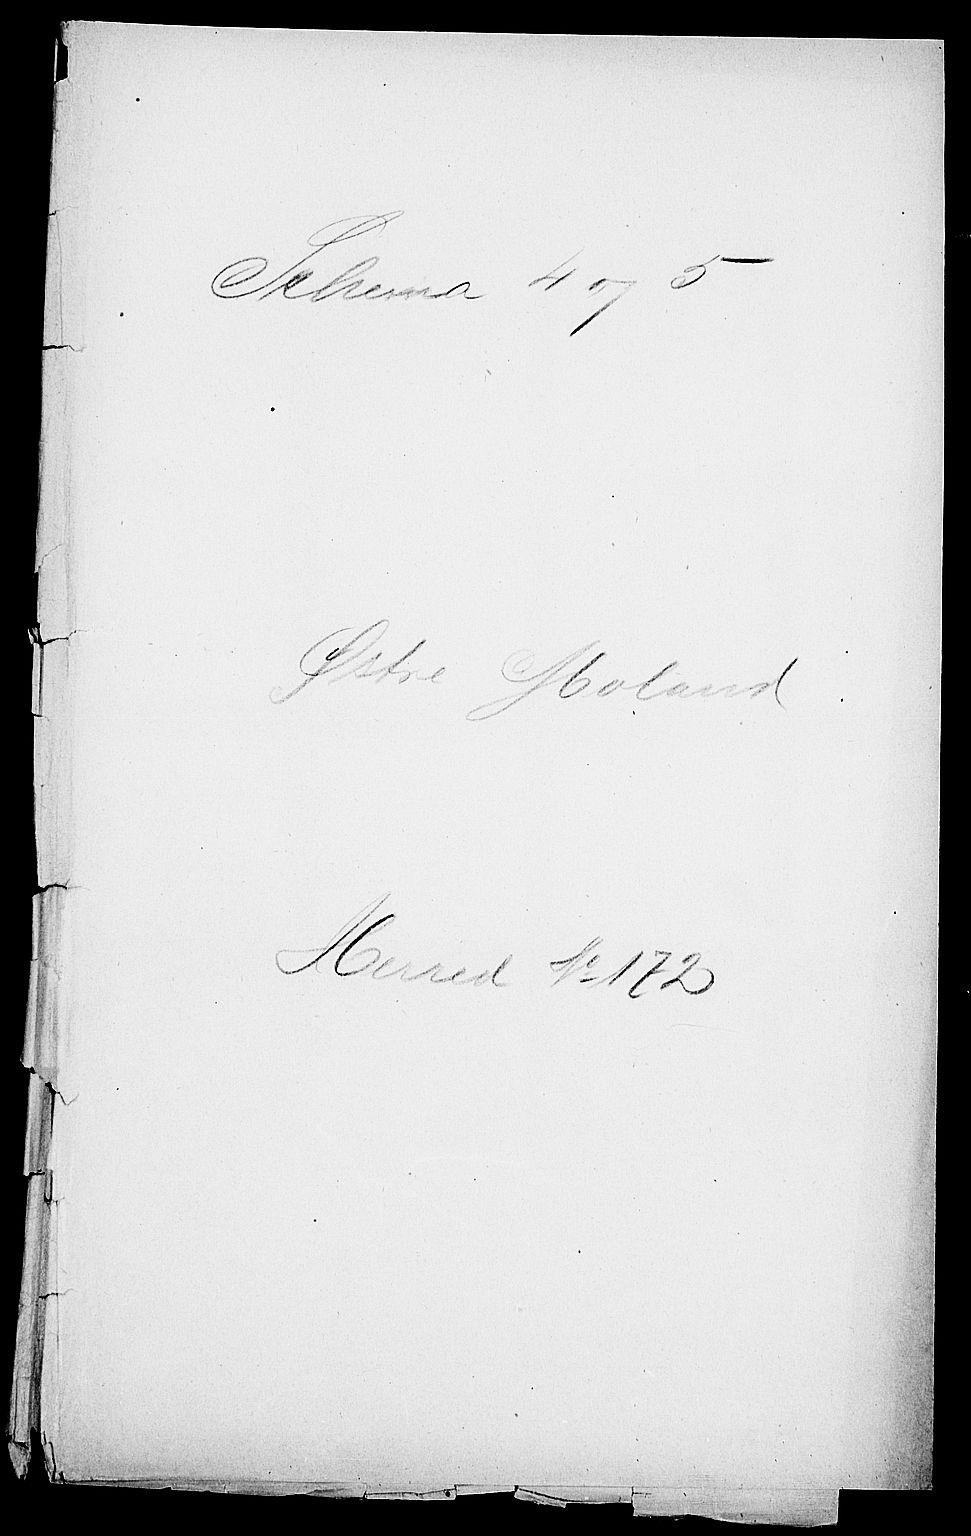 Schema 4 og 5
Østre Moland
Herred No 172